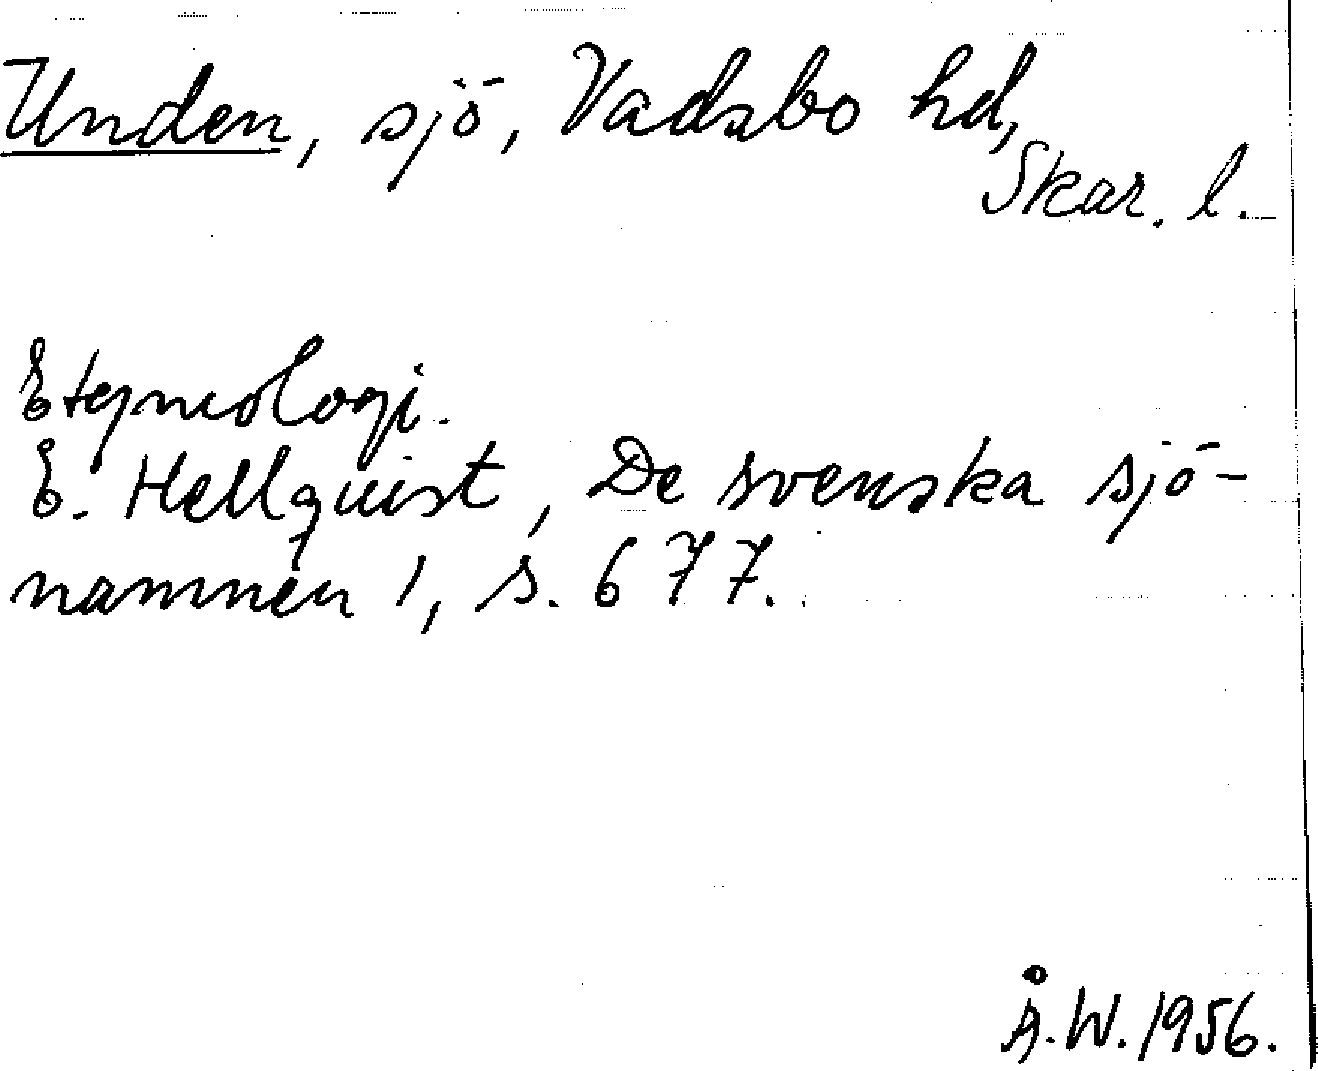 Unden, sjö, Vadsbo hd,
Skar. l.
Etymologi.
E. Hellquist, De svenska sjö-
namnen 1, s. 677.
Å.W. 1956.